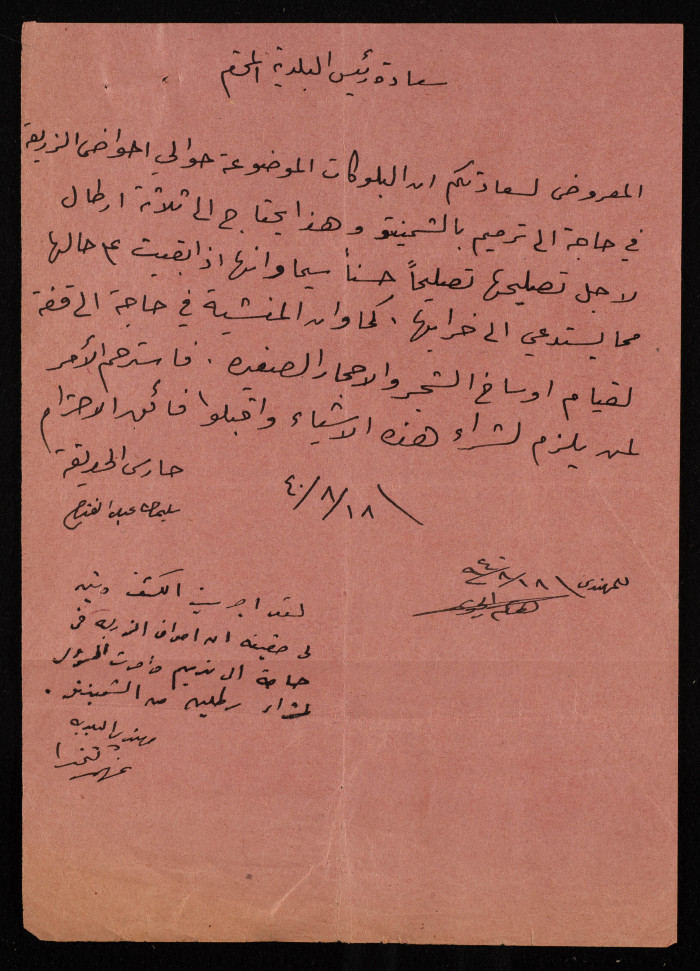 سعادة رئيس البلدية المحترم
المعروض لسعادتكم ان البلوكات الموضوعة حوالي احواض الزريعة
في حاجة الى ترميم بالشمينتو وهذا يحتاج الى ثلاثة ارطال
لاجل تصليحها تصليحاً حسناً سيما وانها اذا بقيت ع حالها
مما يستدعي الى خرابها . كما وان المنشية في حاجة الى قفة
لقيام اوساخ الشجر والاحجار الصغيره . فاسترحم الأمر
لمن يلزم لشراء هذه الاشياء واقبلوا فائق الاحترام
حارس الحديقة
٤٠/٨/١٨
سليمان عبد الفتاح
للمهندس ١٨/٨/٤٠
لقد اجريت الكشف وتبين
لي حقيقة ان احواض الزريعة في
حاجة الى ترميم وامرت المسؤول
لشراء رطلين من الشمينتو .
مهندس البلدية